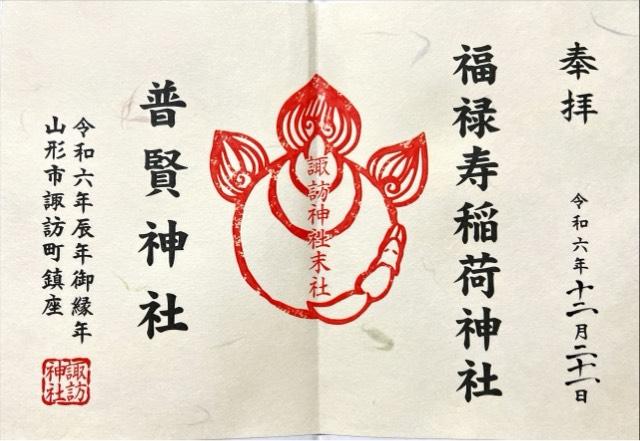 奉拝
令和六年十二月二十一日
福禄寿稲荷神社
諏訪神社末社
普賢神社
令和六年辰年御縁年
山形市諏訪町鎮座
諏訪
神社